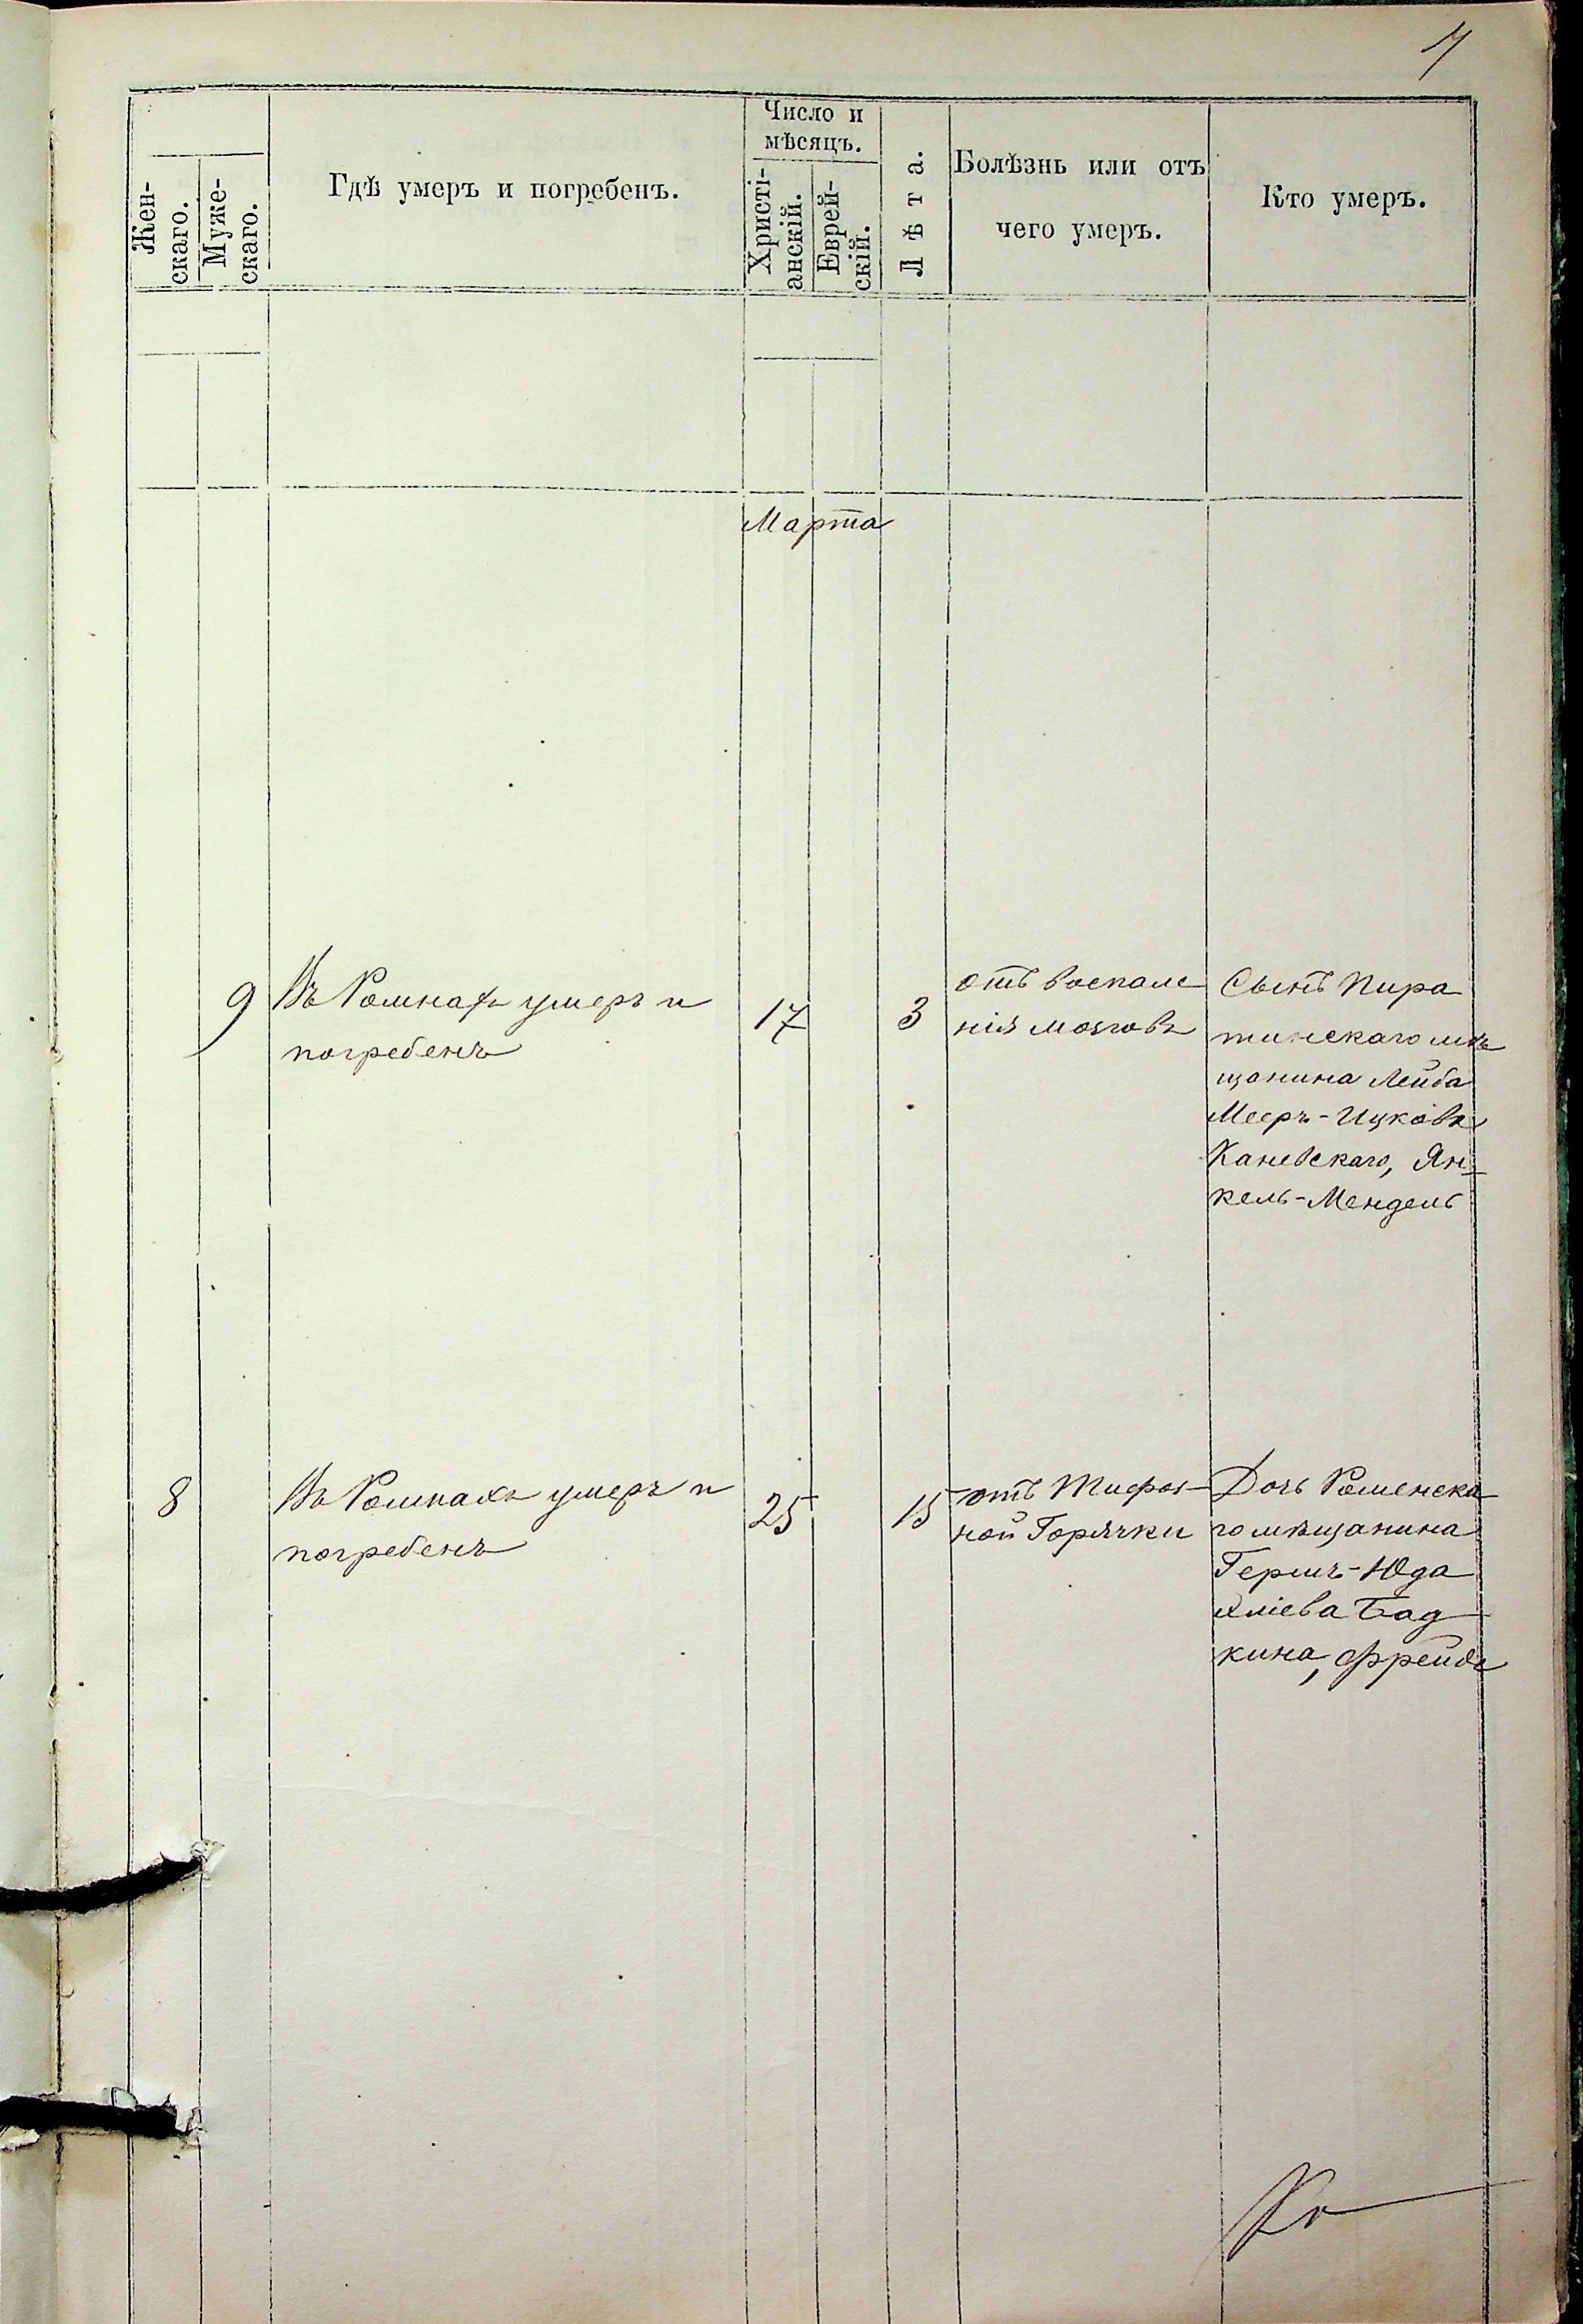 7
Жен-
скаго.
Муже-
скаго.
Гдѣ умеръ и погребенъ.
Число и
мѣсяцъ.
Христі-
анскій.
Еврей-
скій.
Лѣта.
Болѣзнь или отъ
чего умеръ.
Кто умеръ.
Марта
9
Въ Ромнахъ умеръ и
погребенъ
17
3
отъ воспале
нія мозговъ
Сынъ Пиря
тинскаго мѣ
щанина Лейба
Мееръ-Ицковъ
Каневскаго, Ян-
кель-Мендель
8
Въ Ромнахъ умеръ и
погребенъ
25
15
отъ Тифоз-
ной Горячки
Дочь Роменска
го мѣщанина
Гершъ-Юда
Бад
кина, Фрейда